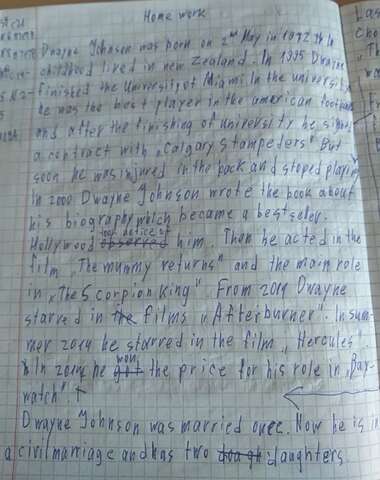 Home work
Dwayne Johnson was born on 2nd May in 1972 In
childhood lived in new Zealand. In 1995 Dwayne
finished the University of Miami In the university
he was the best player in the american football
and after the finishing of university he signed
a contract with „Calgary Stampeders" But
soon he was injured in the back and stoped playing
In 2000 Dwayne Johnson wrote the book about
his biography which became a bestseller.
took notice of
Hollywood observed him. Then he acted in the
film „The mummy returns" and the main role
in „The Scorpion King" From 2014 Dwayne
starred in the films „Afterburner". In sum-
mer 2014 he starred in the film „Hercules".
won
In 2014 he got the price for his role in „Bay-
watch".
Dwayne Johnson was married once. Now he is in
a civil marriage and has two daughters